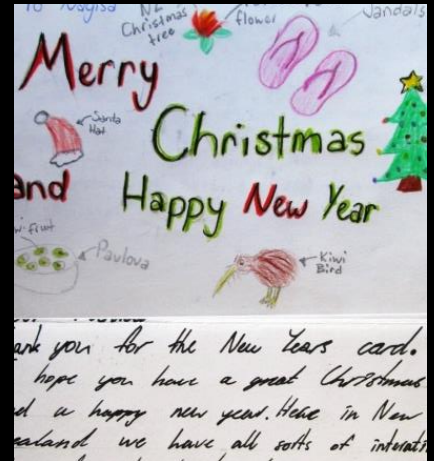 To Nagisa
NZ Christmas tree
flower
Jandals
Merry
Santa Hat
Christmas
and Happy New Year
Pavlova
Kiwi Bird
you for the New Years card.
hope you have a great Christmas
a happy new year. Here in New
we have all sorts of